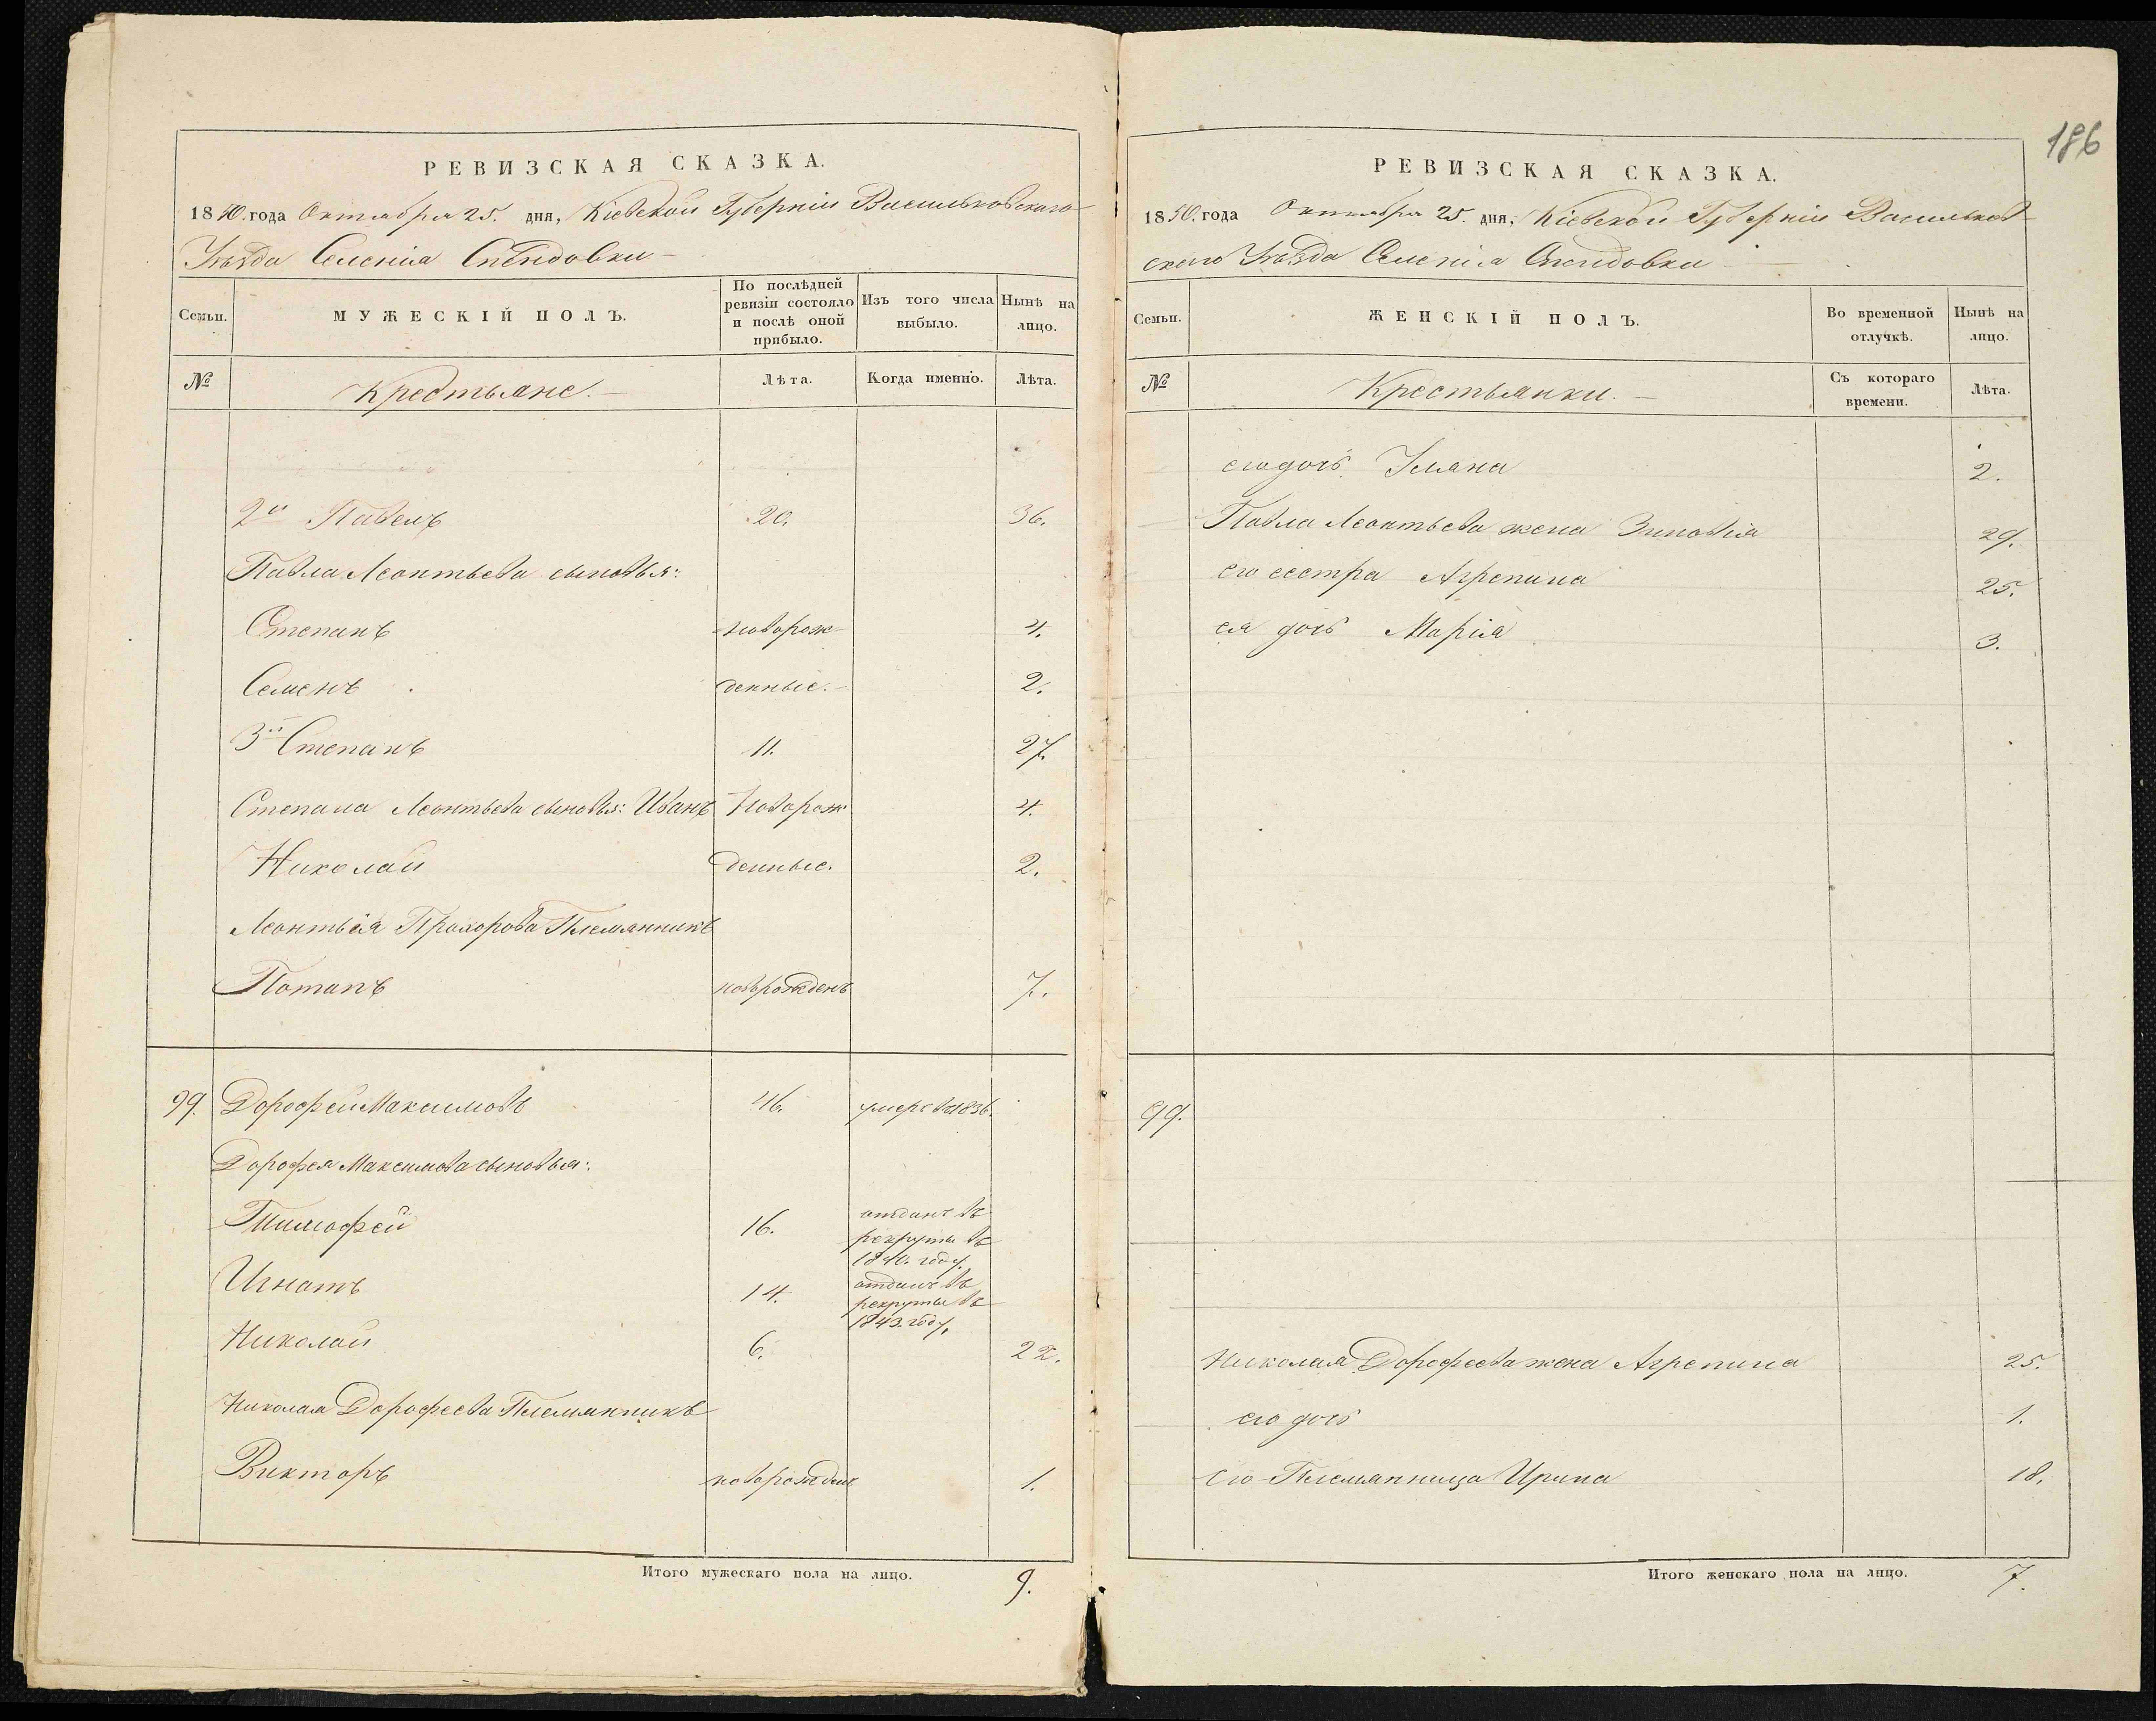 186
РЕВИЗСКАЯ СКАЗКА.
1850. года Октября 25. дня, Кіевской Губерніи Васильковскаго
Уѣзда Селенія
Семьи.
МУЖЕСКІЙ ПОЛЪ.
По послѣдней ревизіи состояло и послѣ оной прибыло.
Изъ того числа выбыло.
Нынѣ на лицо.
№
Крестьяне.
Лѣта.
Когда именно.
Лѣта.
2й Павелъ 20. 36.
Павла Леонтьева сыновья:
Степанъ новорож 4.
Семенъ денные. 2.
3й Степанъ 11. 27.
Степана Леонтьева сыновья: Иванъ Новорож 4.
Николай денные. 2.
Леонтьія Прохорова Племянникъ
Потапъ новорожденъ 7.
99. Дорофей Максимовъ 46. умеръ въ 1836.
Дорофея Максимова сыновья:
Тимофей 16. отданъ въ
рекруты въ
1840. году.
Игнатъ 14. отданъ въ
рекруты въ
1843. году.
Николай 6. 22.
Николая Дорофеева Племянникъ
Викторъ новорожденъ 1.
Итого мужескаго пола на лицо. 9.
РЕВИЗСКАЯ СКАЗКА.
1850. года Октября 25. дня, Кіевской Губерніи Васильков
скаго Уѣзда Селенія
Семьи.
ЖЕНСКІЙ ПОЛЪ.
Во временной отлучкѣ.
Нынѣ на лицо.
№
Крестьянки.
Съ котораго времени.
Лѣта.
его дочь Уляна 2.
Павла Леонтьева жена Зиновія 29.
его сестра Агрепина 25.
ея дочь Марія 3.
99.
Николая Дорофеева жена Агрепина 25.
его дочь 1.
его Племянница Ирина 18.
Итого женскаго пола на лицо. 7.